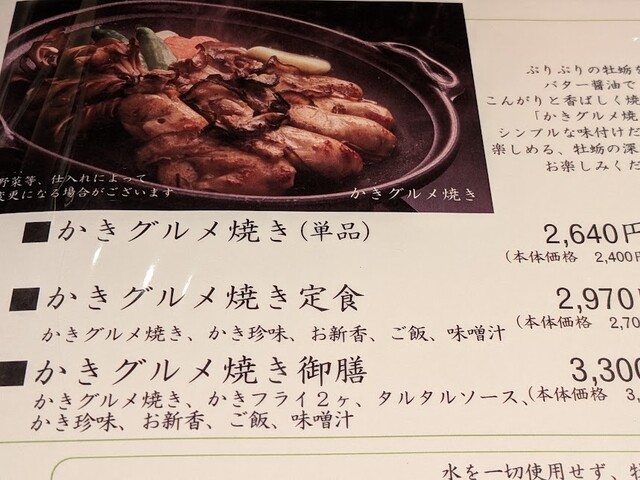 ぷりぷりの牡蛎を
バター醤油で
こんがりと香ばしく焼
「かきグルメ焼
シンプルな味付けだ
楽しめる、牡蛎の深
お楽しみくだ
野菜等、仕入れによって
変更になる場合がございます
かきグルメ焼き
■かきグルメ焼き(単品) 2,640円
(本体価格 2,400円
■かきグルメ焼き定食 2,970円
かきグルメ焼き、かき珍味、お新香、ご飯、味噌汁 (本体価格 2,70
■かきグルメ焼き御膳 3,300
かきグルメ焼き、かきフライ2ヶ、タルタルソース、(本体価格 3,
かき珍味、お新香、ご飯、味噌汁
水を一切使用せず、牡